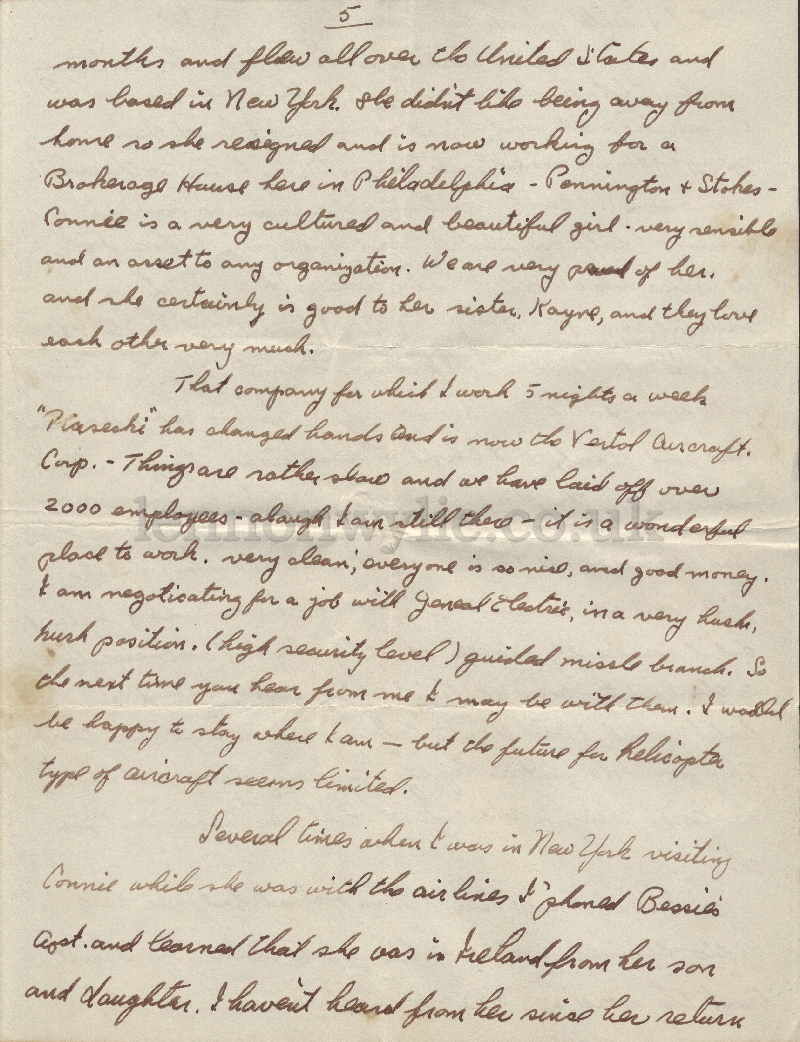 5
months and flew all over the United States and
was based in New York. She didn't like being away from
home so she resigned and is now working for a
Brokerage House here in Philadelphia - Pennington + Stokes -
Connie is a very cultured and beautiful girl - very sensible
and an asset to any organization. We are very proud of her.
and she certainly is good to her sister, Kayne, and they love
each other very much.
That company for which I work 5 nights a week
"Piaseski" has changed hands and is now the Vertol Aircraft.
Corp. - Things are rather slow and we have laid off over
2000 employees - alough I am still there - it is a wonderful
lennonwylie.co.uk
place to work. very clean, everyone is so nice, and good money.
I am negoticating for a job with General Electric, in a very hush,
hush position. (high security level) guided missle branch. So
the next time you hear from me I may be with them. I would
be happy to stay where I am - but the future for helicopter
type of aircraft seems limited.
Several times when I was in New York visiting
Connie while she was with the airlines I 'phoned Bessie's
Apt. and learned that she was in Ireland from her son
and daughter. I haven't heard from her since her return